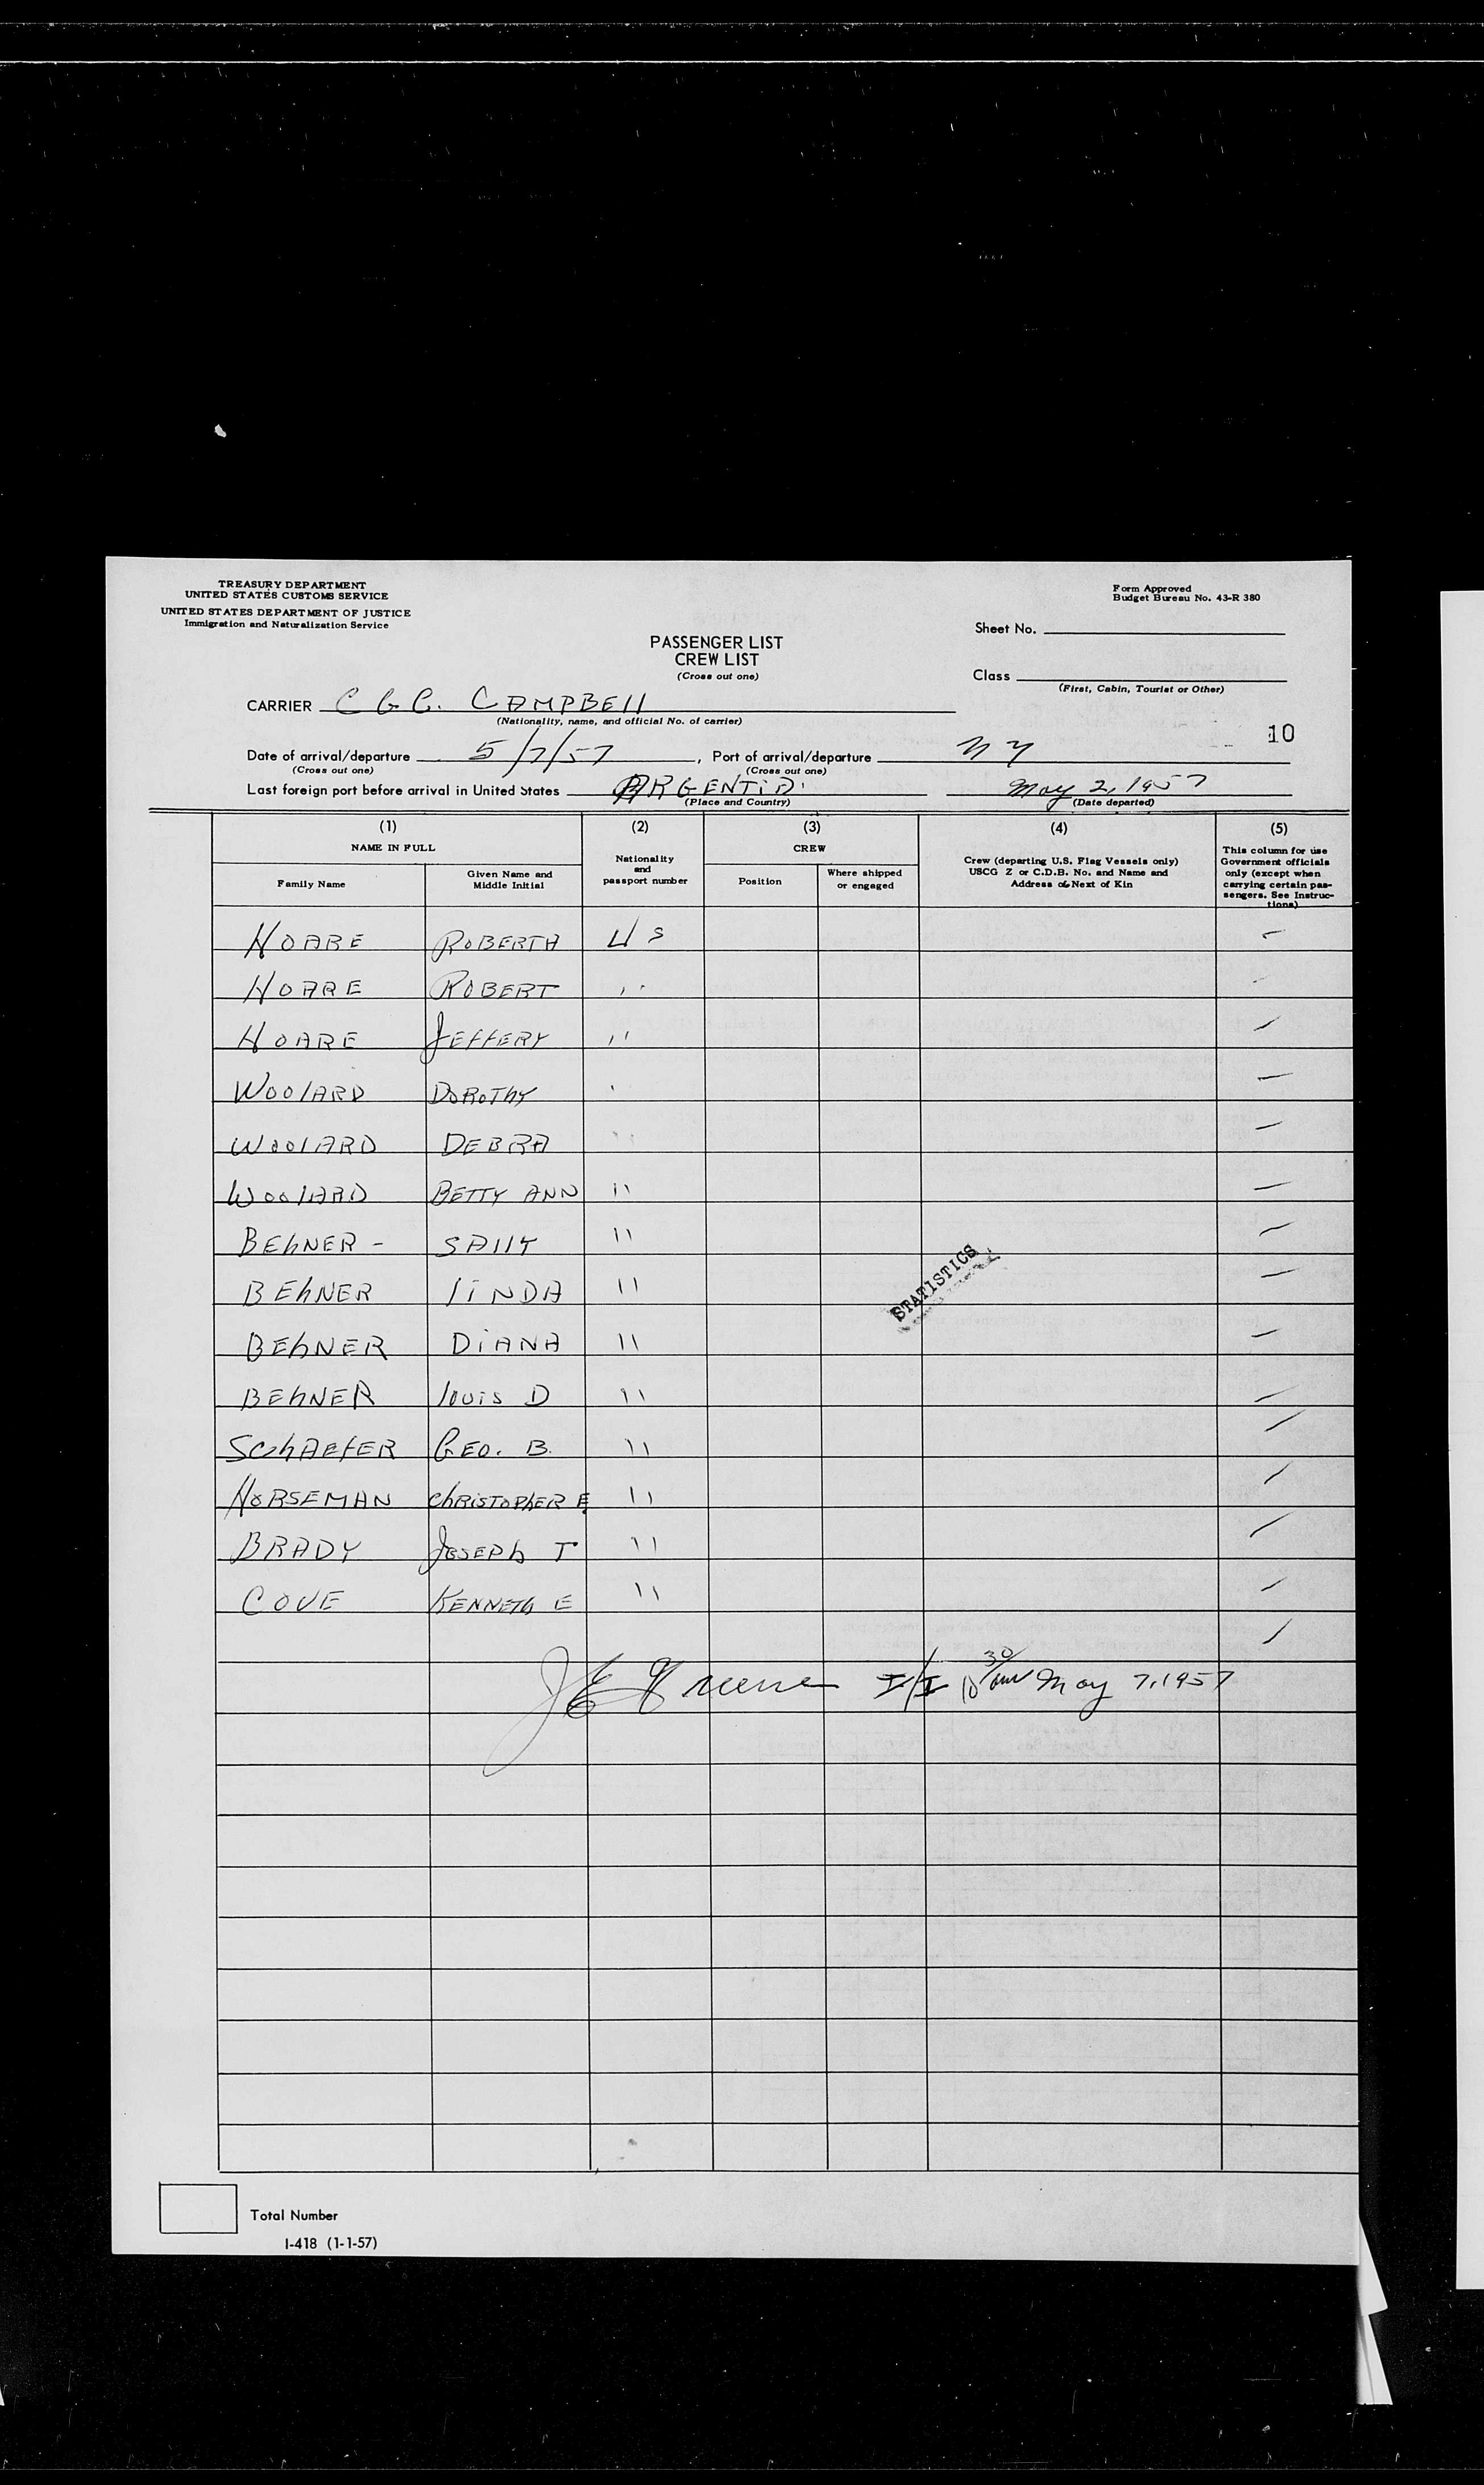 TREASURY DEPARTMENT
UNITED STATES CUSTOMS SERVICE
UNITED STATES DEPARTMENT OF JUSTICE
Immigration and Naturalization Service
Form Approved
Budget Bureau No. 43-R 380
Sheet No.
PASSENGER LIST
CREW LIST
(Cross out one)
Class
(First, Cabin, Tourist or Other)
CARRIER CGC. CAMPBEll
(Nationality, name, and official No. of carrier)
10
Date of arrival/departure 5/7/57, Port of arrival/departure NY
(Cross out one) (Cross out one)
Last foreign port before arrival in United States ARGENTiA May 2, 1957
(Place and Country) (Date departed)
(1) (2) (3) (4) (5)
NAME IN FULL Nationality and passport number CREW Crew (departing U.S. Flag Vessels only) USCG Z or C.D.B. No. and Name and Address of Next of Kin This column for use Government officials only (except when carrying certain passengers. See Instructions)
Family Name Given Name and Middle Initial Position Where shipped or engaged
HOARE ROBERTA US
HOARE ROBERT "
HOARE JEFFERY "
WoolARD DOROThY "
WoolARD DEBRA "
WoolARD BETTY ANN "
BEhNER - SAllY "
BEhNER liNDA "
BEhNER DiANA "
BEhNER louis D "
SChAEFER GEO. B. "
HORSEMAN ChRiSTOPhER E. "
BRADY JOSEPh T "
COVE KENNETh E "
STATISTICS
J E Greene I/I 10 30 am May 7, 1957
Total Number
I-418 (1-1-57)